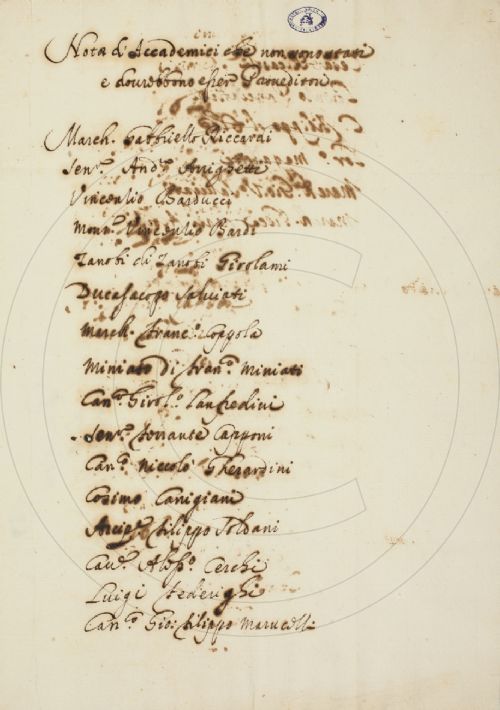 Nota d'Accademici che non sono stati
e dovrebbono esser Proveditori
March. Gabbriello Riccardi
Sen.r And.a Arrighetti
Vincenzio Barducci
Mons.r Vincenzio Bardi
Zanobi di Zanobi Girolami
Duca Jacopo Salviati
March. Franc.o Coppola
Miniato Di Fran.o Miniati
Can.o Girol.o Lanfredini
Sen.r Ferrante Capponi
Can.o Niccolò Gherardini
Cosimo Canigiani
Filippo Soldani
Cav.r Aless.o Cerchi
Luigi Federighi
Can.o Gio: Filippo Marucelli